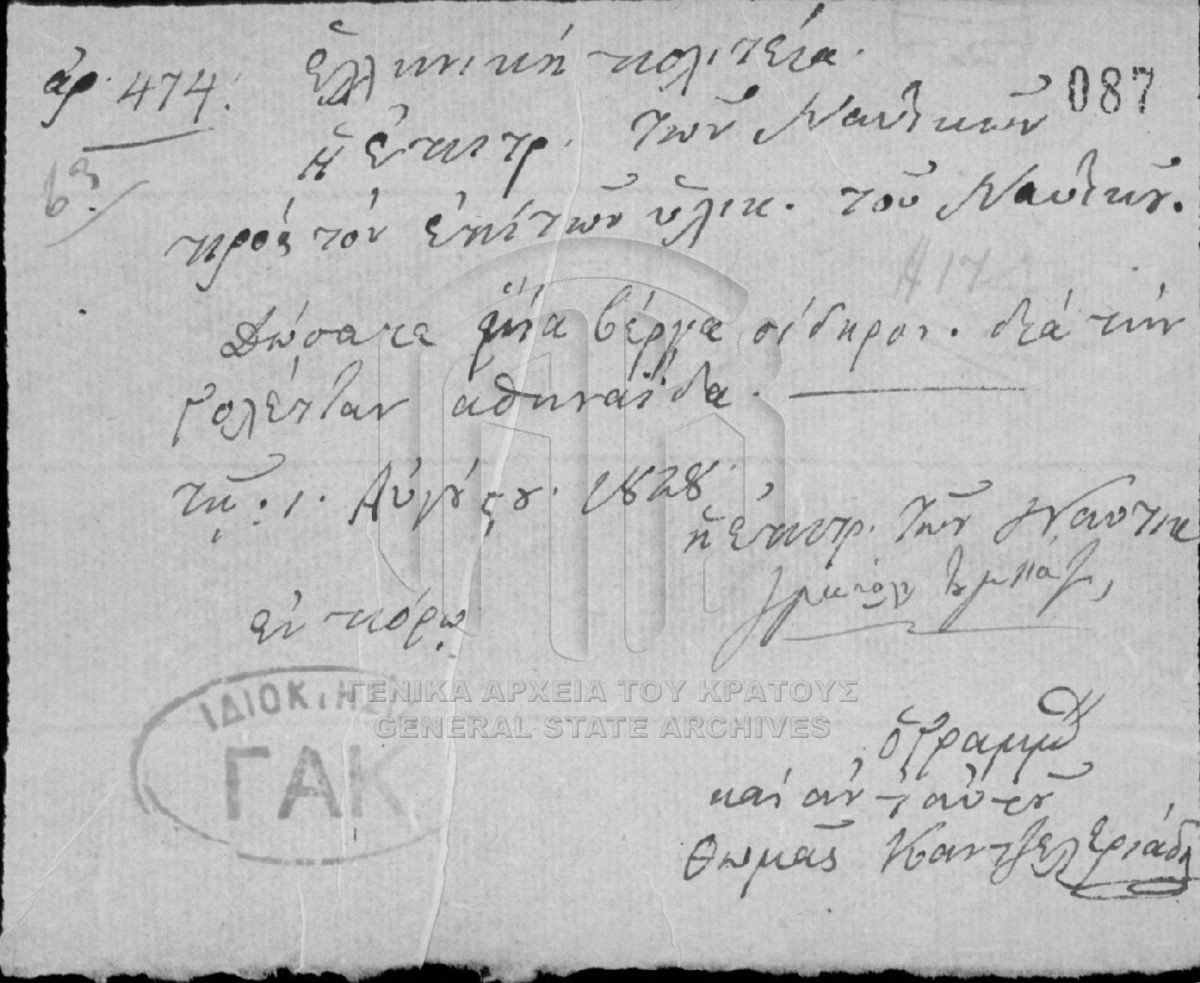 ἀρ. 474. Ἑλληνική πολιτεία.
087
ἡ ἐπιτρ. τῶν Ναυτικῶν
63
πρός τόν ἐπί τῶν ὑλικ. τοῦ Ναυτικοῦ.
Α 17
Δώσατε μία βέργα σίδηρον. διά τήν
γολέτταν αθηναΐδα.
τῇ. 1. Αὐγούστου. 1828.
ἡ ἐπιτρ. τῶν Ναυτικ
ἐν πόρῳ
ΙΔΙΟΚΤΗΣ
ΓΑΚ
ΓΕΝΙΚΑ ΑΡΧΕΙΑ ΤΟΥ ΚΡΑΤΟΥΣ
GENERAL STATE ARCHIVES
ὁ Γραμμ
καί αντ αὐτοῦ
Θωμᾶς Καντζελεριάδη